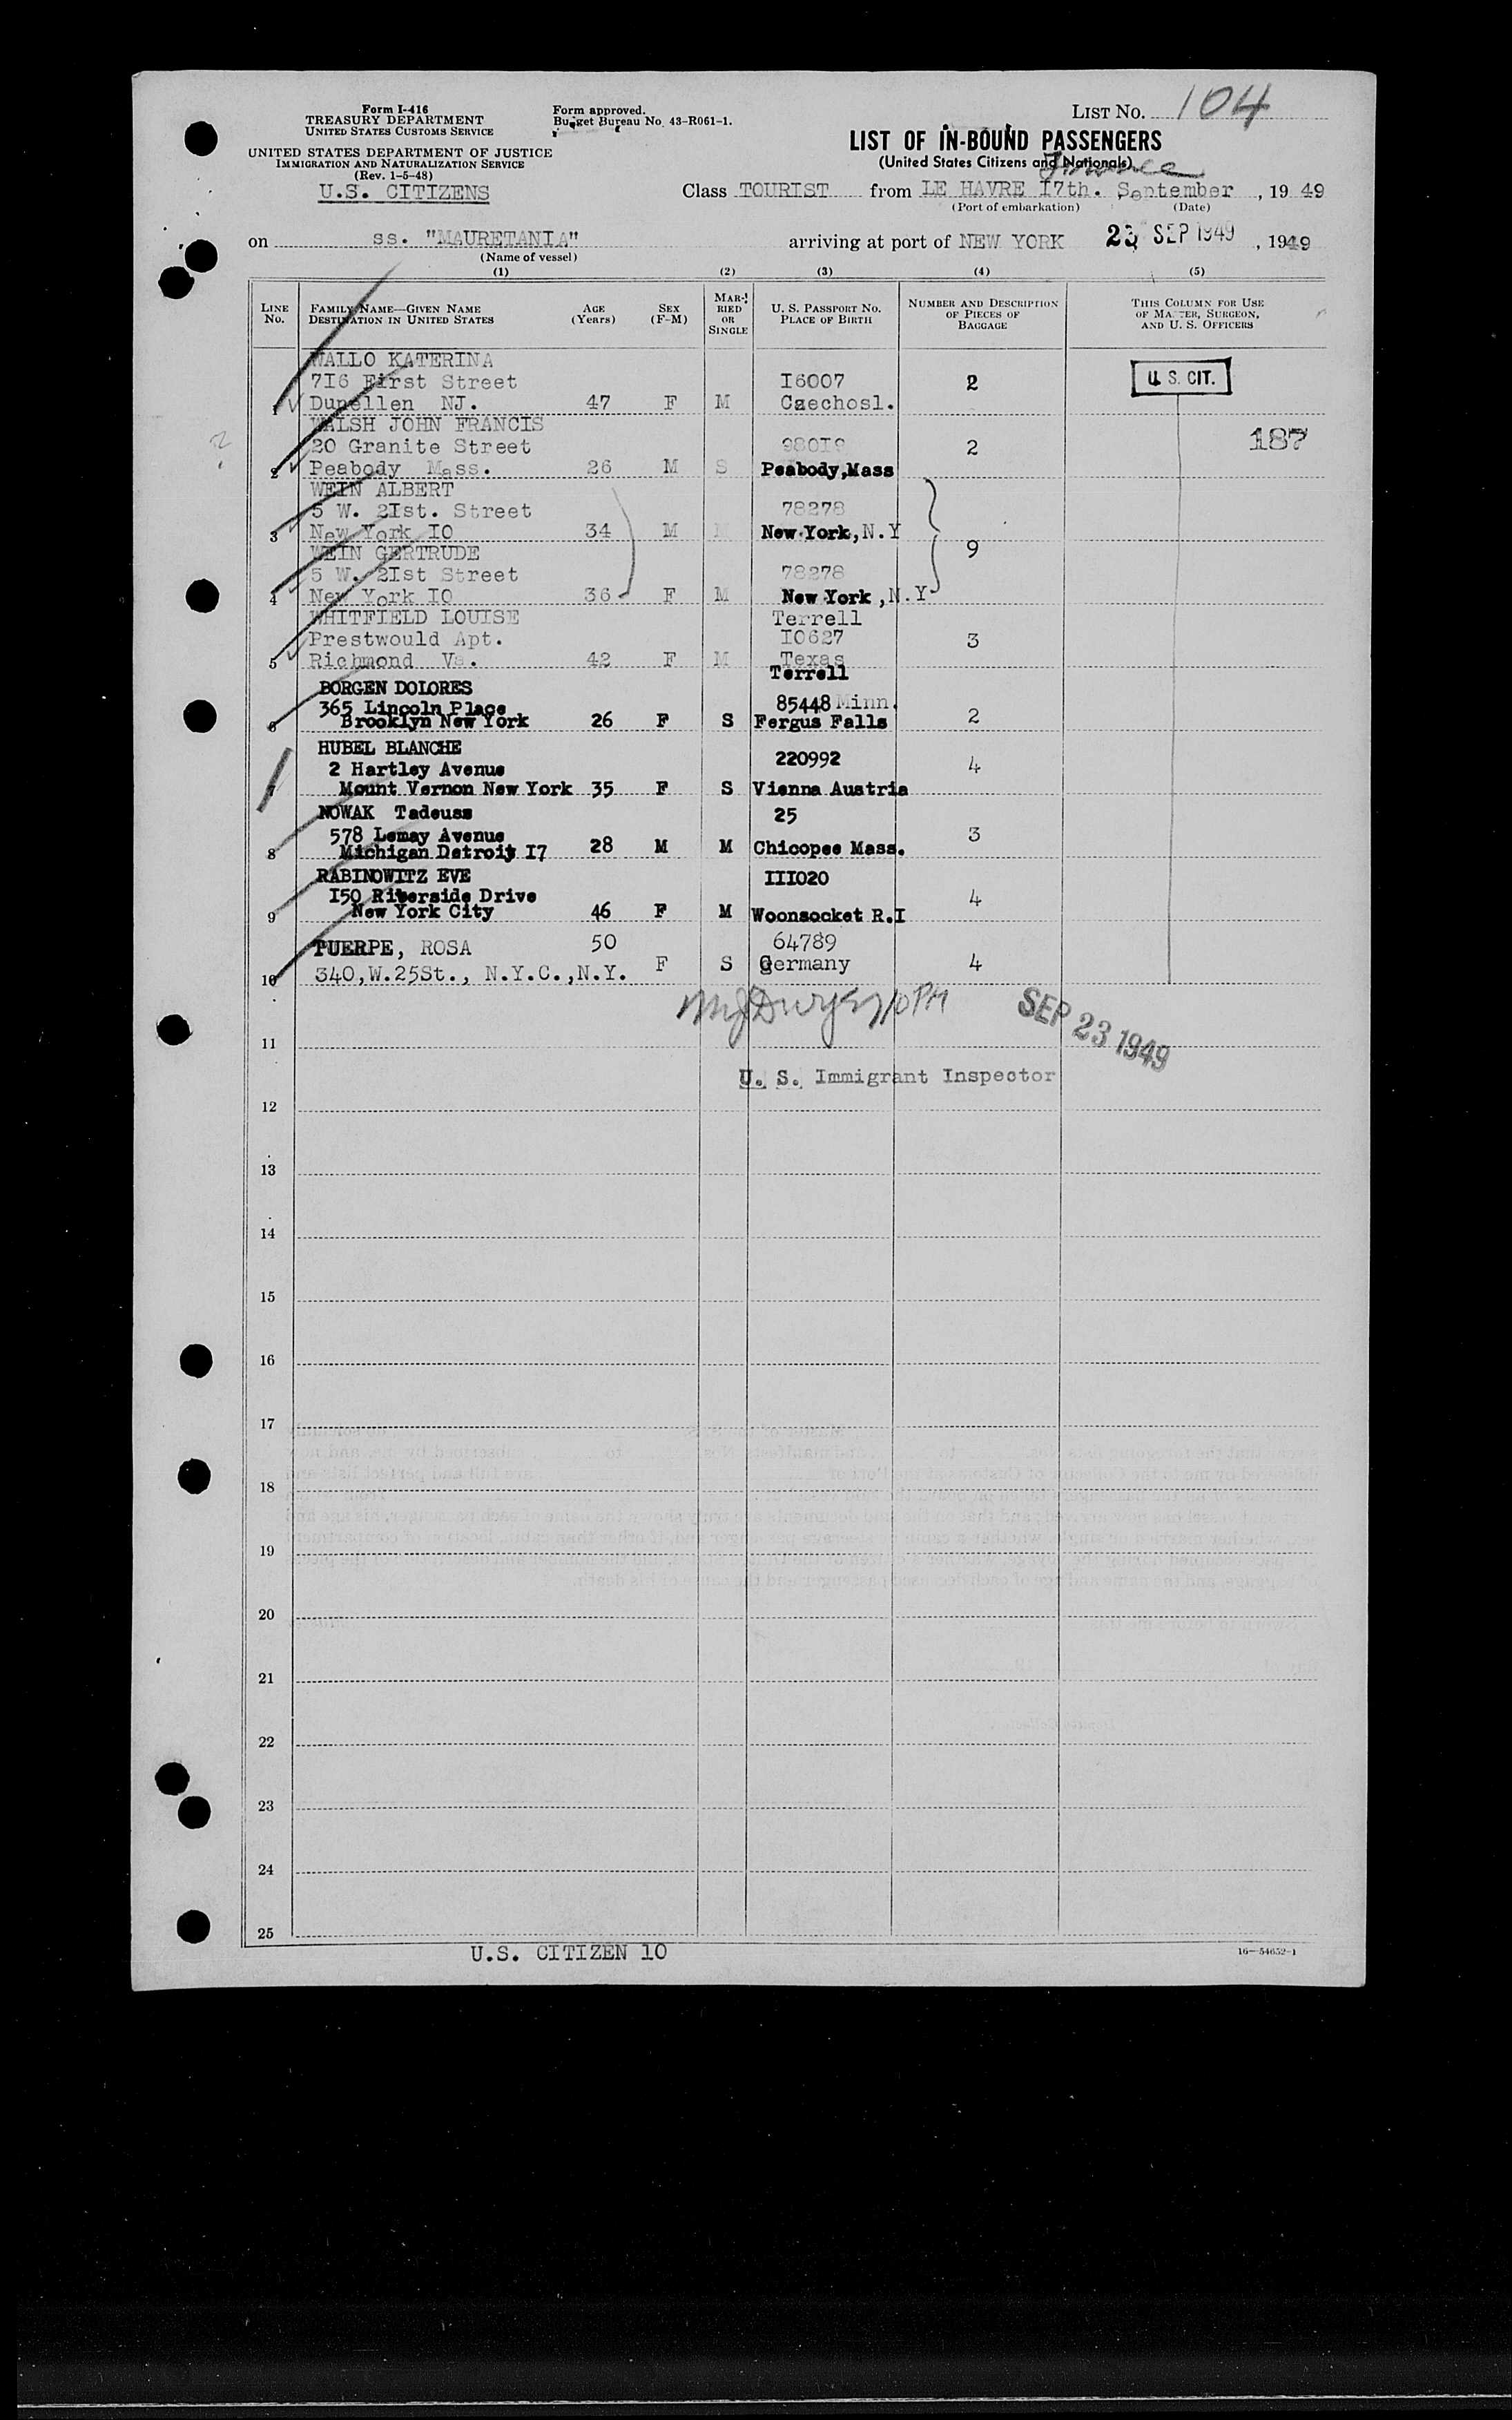 Form I-416
TREASURY DEPARTMENT
UNITED STATES CUSTOMS SERVICE
UNITED STATES DEPARTMENT OF JUSTICE
IMMIGRATION AND NATURALIZATION SERVICE
(Rev. 1-5-48)
U.S. CITIZENS
Form approved.
Budget Bureau No. 43-R061-1.
LIST No. 104
LIST OF IN-BOUND PASSENGERS
(United States Citizens and Nationals)
France
Class TOURIST from LE HAVRE I7th. September, 19 49
(Port of embarkation) (Date)
on ss. "MAURETANIA" arriving at port of NEW YORK 23 SEP 1949, 1949
(Name of vessel)
(1) (2) (3) (4) (5)
LINE No. FAMILY NAME—GIVEN NAME DESTINATION IN UNITED STATES AGE (Years) SEX (F-M) MARRIED OR SINGLE U. S. PASSPORT No. PLACE OF BIRTH NUMBER AND DESCRIPTION OF PIECES OF BAGGAGE THIS COLUMN FOR USE OF MASTER, SURGEON, AND U. S. OFFICERS
WALLO KATERINA
7I6 First Street I6007 2 U. S. CIT.
1 Dunellen NJ. 47 F M Czechosl.
WALSH JOHN FRANCIS 187
20 Granite Street 980I9 2
2 Peabody Mass. 26 M S Peabody,Mass
WEIN ALBERT
5 W. 2Ist. Street 78278
3 New York IO 34 M M New York, N.Y
WEIN GERTRUDE 9
5 W. 2Ist Street 78278
4 New York IO 36 F M New York, N.Y
WHITFIELD LOUISE Terrell
Prestwould Apt. I0627 3
5 Richmond Va. 42 F M Texas
Terrell
BORGEN DOLORES
365 Lincoln Place 85448 Minn.
6 Brooklyn New York 26 F S Fergus Falls 2
HUBEL BLANCHE
2 Hartley Avenue 220992 4
7 Mount Vernon New York 35 F S Vienna Austria
NOWAK Tadeusz 25
578 Lemay Avenue 3
8 Michigan Detroit I7 28 M M Chicopee Mass.
RABINOWITZ EVE III020
I50 Riverside Drive 4
9 New York City 46 F M Woonsocket R.I
TUERPE, ROSA 50 64789
10 340,W.25St., N.Y.C.,N.Y. F S Germany 4
10 PM SEP 23 1949
11
U. S. Immigrant Inspector
12
13
14
15
16
17
18
19
20
21
22
23
24
25
U.S. CITIZEN 10
16—54652-1